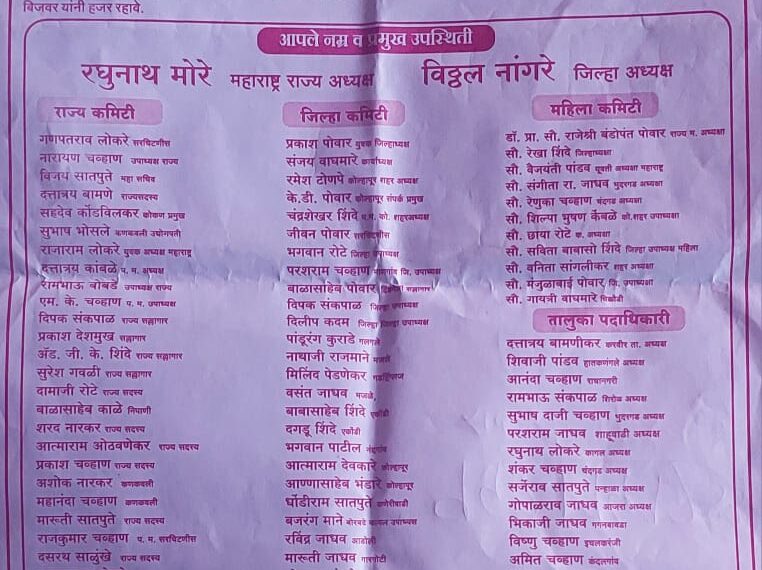 बिजवर यांनी हजर रहावे.
आपले नम्र व प्रमुख उपस्थिती
रघुनाथ मोरे महाराष्ट्र राज्य अध्यक्ष विठ्ठल नांगरे जिल्हा अध्यक्ष
राज्य कमिटी
गणपतराव लोकरे सरचिटणीस
नारायण चव्हाण उपाध्यक्ष राज्य
विजय सातपुते महा सचिव
दत्तात्रय बामणे राज्यसदस्य
सहदेव कोंडविलकर कोकण प्रमुख
सुभाष भोसले कणकवली उद्योगपती
राजाराम लोकरे युवक अध्यक्ष महाराष्ट्र
दत्तात्रय कांबळे प. म. अध्यक्ष
रामभाऊ बोबडे उपाध्यक्ष राज्य
एम. के. चव्हाण प. म. उपाध्यक्ष
दिपक संकपाळ राज्य सल्लागार
प्रकाश देशमुख राज्य सल्लागार
ॲड. जी. के. शिंदे राज्य सल्लागार
सुरेश गवळी राज्य सल्लागार
दामाजी रोटे राज्य सदस्य
बाळासाहेब काळे निपाणी
शरद नारकर राज्य सदस्य
आत्माराम ओठवणेकर राज्य सदस्य
प्रकाश चव्हाण राज्य सदस्य
अशोक नारकर कणकवली
महानंदा चव्हाण कणकवली
मारूती सातपुते राज्य सदस्य
राजकुमार चव्हाण प. म. सरचिटणीस
दसरथ साळुंखे राज्य सदस्य
जिल्हा कमिटी
प्रकाश पोवार युवक जिल्हाध्यक्ष
संजय वाघमारे कार्याध्यक्ष
रमेश टोणपे कोल्हापूर शहर अध्यक्ष
के.डी. पोवार कोल्हापूर संपर्क प्रमुख
चंद्रशेखर शिंदे प.म. को. शहरअध्यक्ष
जीवन पोवार सरचिटणीस
भगवान रोटे जिल्हा उपाध्यक्ष
परशराम चव्हाण जि. उपाध्यक्ष
बाळासाहेब पोवार सल्लागार
दिपक संकपाळ जिल्हा उपाध्यक्ष
दिलीप कदम जिल्हा उपाध्यक्ष
पांडूरंग कुराडे गलगले
नाथाजी राजमाने मजले
मिलिंद पेडणेकर गडहिंग्लज
वसंत जाधव मजले,
बाबासाहेब शिंदे एकोंडी
दगडू शिंदे एकोंडी
भगवान पाटील
आत्माराम देवकारे कोल्हापूर
आण्णासाहेब भंडारे कोल्हापूर
धोंडीराम सातपुते
बजरंग माने बोरवडे कागल उपाध्यक्ष
रविंद्र जाधव आडोली
मारूती जाधव गारगोटी
महिला कमिटी
डॉ. प्रा. सौ. राजेश्री बंडोपंत पोवार राज्य म. अध्यक्षा
सौ. रेखा शिंदे जिल्हाध्यक्षा
सौ. वैजयंती पांडव युवती अध्यक्षा महाराष्ट्र
सौ. संगीता रा. जाधव भुदरगड अध्यक्षा
सौ. रेणुका चव्हाण चंदगड अध्यक्षा
सौ. शिल्पा भुषण कंबळे को.शहर उपाध्यक्षा
सौ. छाया रोटे क. अध्यक्षा
सौ. सविता बाबासो शिंदे जिल्हा उपाध्यक्ष महिला
सौ. वनिता सांगलीकर शहर अध्यक्षा
सौ. मंजुळाबाई पोवार जि. उपाध्यक्षा
सौ. गायत्री वाघमारे चिकोडी
तालुका पदाधिकारी
दत्तात्रय बामणीकर करवीर ता. अध्यक्ष
शिवाजी पांडव हातकणंगले अध्यक्ष
आनंदा चव्हाण राधानगरी
रामभाऊ संकपाळ शिरोळ अध्यक्ष
सुभाष दाजी चव्हाण भुदरगड अध्यक्ष
परशराम जाधव शाहूवाडी अध्यक्ष
रघुनाथ लोकरे कागल अध्यक्ष
शंकर चव्हाण चंदगड अध्यक्ष
सर्जेराव सातपुते पन्हाळा अध्यक्ष
गोपाळराव जाधव आजरा अध्यक्ष
भिकाजी जाधव गगनबावडा
विष्णु चव्हाण इचलकरंजी
अमित चव्हाण कंदलगांव